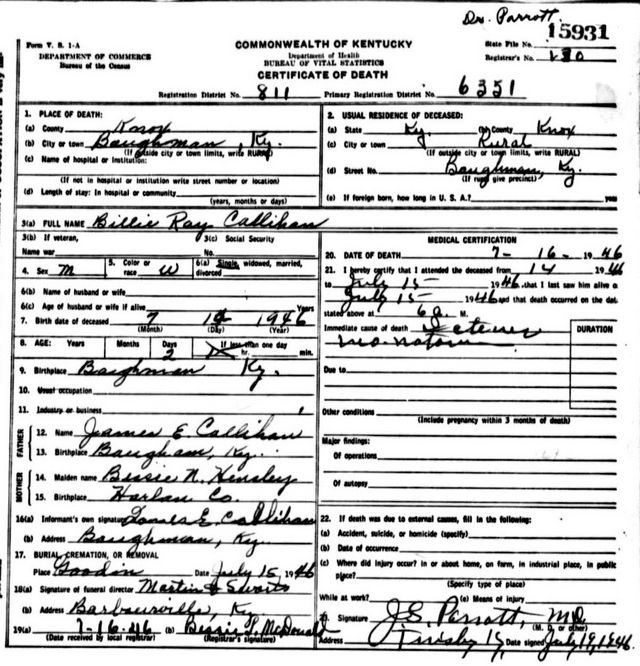 Dr. Parrott.
Form V. S. 1-A
DEPARTMENT OF COMMERCE
Bureau of the Census
COMMONWEALTH OF KENTUCKY
Department of Health
BUREAU OF VITAL STATISTICS
CERTIFICATE OF DEATH
State File No. 15931
Registrar's No.
Registration District No. 811 Primary Registration District No. 6351
1. PLACE OF DEATH:
(a) County Knox
(b) City or town Baughman, Ky.
(If outside city or town limits, write RURAL)
(c) Name of hospital or institution:
(If not in hospital or institution write street number or location)
(d) Length of stay: In hospital or community
(years, months or days)
2. USUAL RESIDENCE OF DECEASED:
(a) State Ky. (b) County Knox
(c) City or town Rural
(If outside city or town limits, write RURAL)
(d) Street No. Baughman, Ky.
(If rural give precinct)
(e) If foreign born, how long in U. S. A.? year
3(a) FULL NAME Billie Ray Callihan
3(b) If veteran, 3(c) Social Security
Name war No.
4. Sex M 5. Color or race W 6(a) Single, widowed, married, divorced
6(b) Name of husband or wife
6(c) Age of husband or wife if alive Years
7. Birth date of deceased 7 1946
(Month) (Day) (Year)
8. AGE: Years Months Days If less than one day
2 hr. min.
9. Birthplace Baughman Ky.
10. Usual occupation
11. Industry or business
FATHER
12. Name James E. Callihan
13. Birthplace Baugham, Ky.
MOTHER
14. Maiden name Bessie N. Hensley
15. Birthplace Harlan Co.
16(a) Informant's own signature James E. Callihan
(b) Address Baughman, Ky.
17. BURIAL, CREMATION, OR REMOVAL
Place Goodin Date July 15, 1946
18(a) Signature of funeral director Martin
(b) Address Barbourville, Ky.
19(a) 7-16-46 (b) Bessie McDonald
(Date received by local registrar) (Registrar's signature)
MEDICAL CERTIFICATION
20. DATE OF DEATH 7-16-1946
21. I hereby certify that I attended the deceased from 14 1946
to July 15 1946, that I last saw him alive o
July 15 1946 and that death occurred on the dat
stated above at 6 a. M.
Immediate cause of death Icterus DURATION
neonatorum
Due to
Other conditions
(Include pregnancy within 3 months of death)
Major findings:
Of operations
Of autopsy
22. If death was due to external causes, fill in the following:
(a) Accident, suicide, or homicide (specify)
(b) Date of occurrence
(c) Where did injury occur? In or about home, on farm, in industrial place, in public
place?
(Specify type of place)
While at work? (e) Means of injury
Signature J.S. Parrott, MD
(M. D. or other)
Address Date signed July 19, 1946